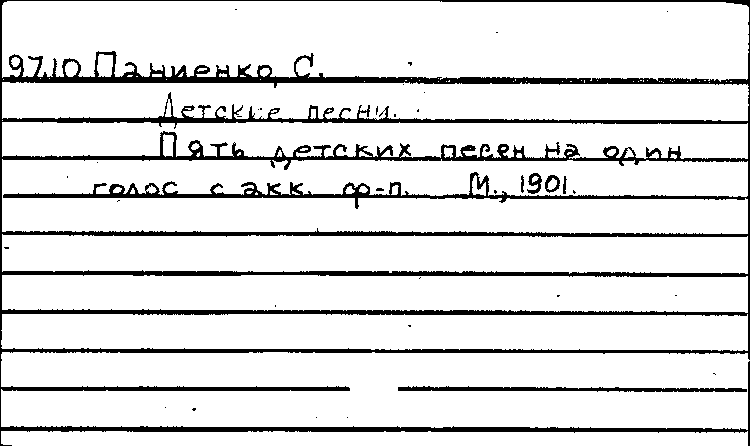 9710 Паниенко, С.
Детские песни.
Пять детских песен на один
голос с акк. ф-п. М., 1901.